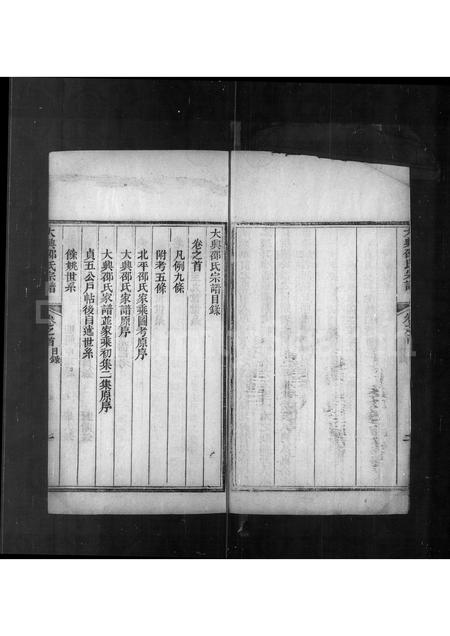 大興邵氏宗譜
大興邵氏宗譜目錄
卷之首
凡例九條
附考五條
北平邵氏家乘圖考原序
大興邵氏家譜原序
大興邵氏家譜並家乘初集二集原序
貞五公戶帖後自述世系
餘姚世系
大興邵氏宗譜
卷之首 目錄